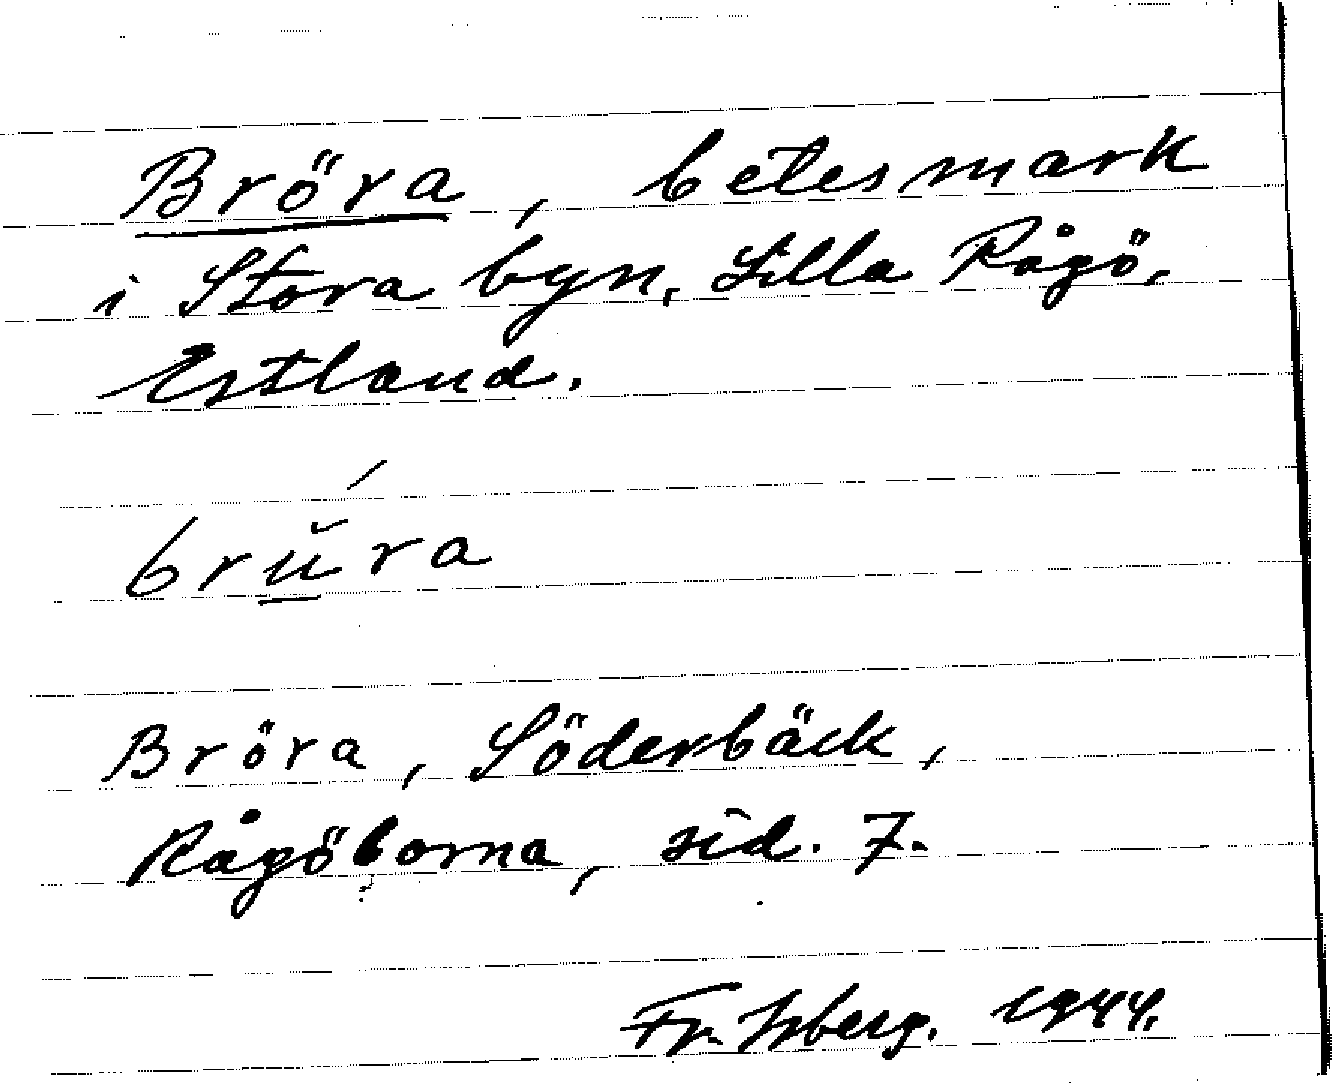 Bröra, betesmark
i Stora byn, Lilla Rågö,
Estland.
brŭ́ra
Bröra, Söderbäck,
Rågöborna, sid. 7.
Fr. Isberg. 1944.